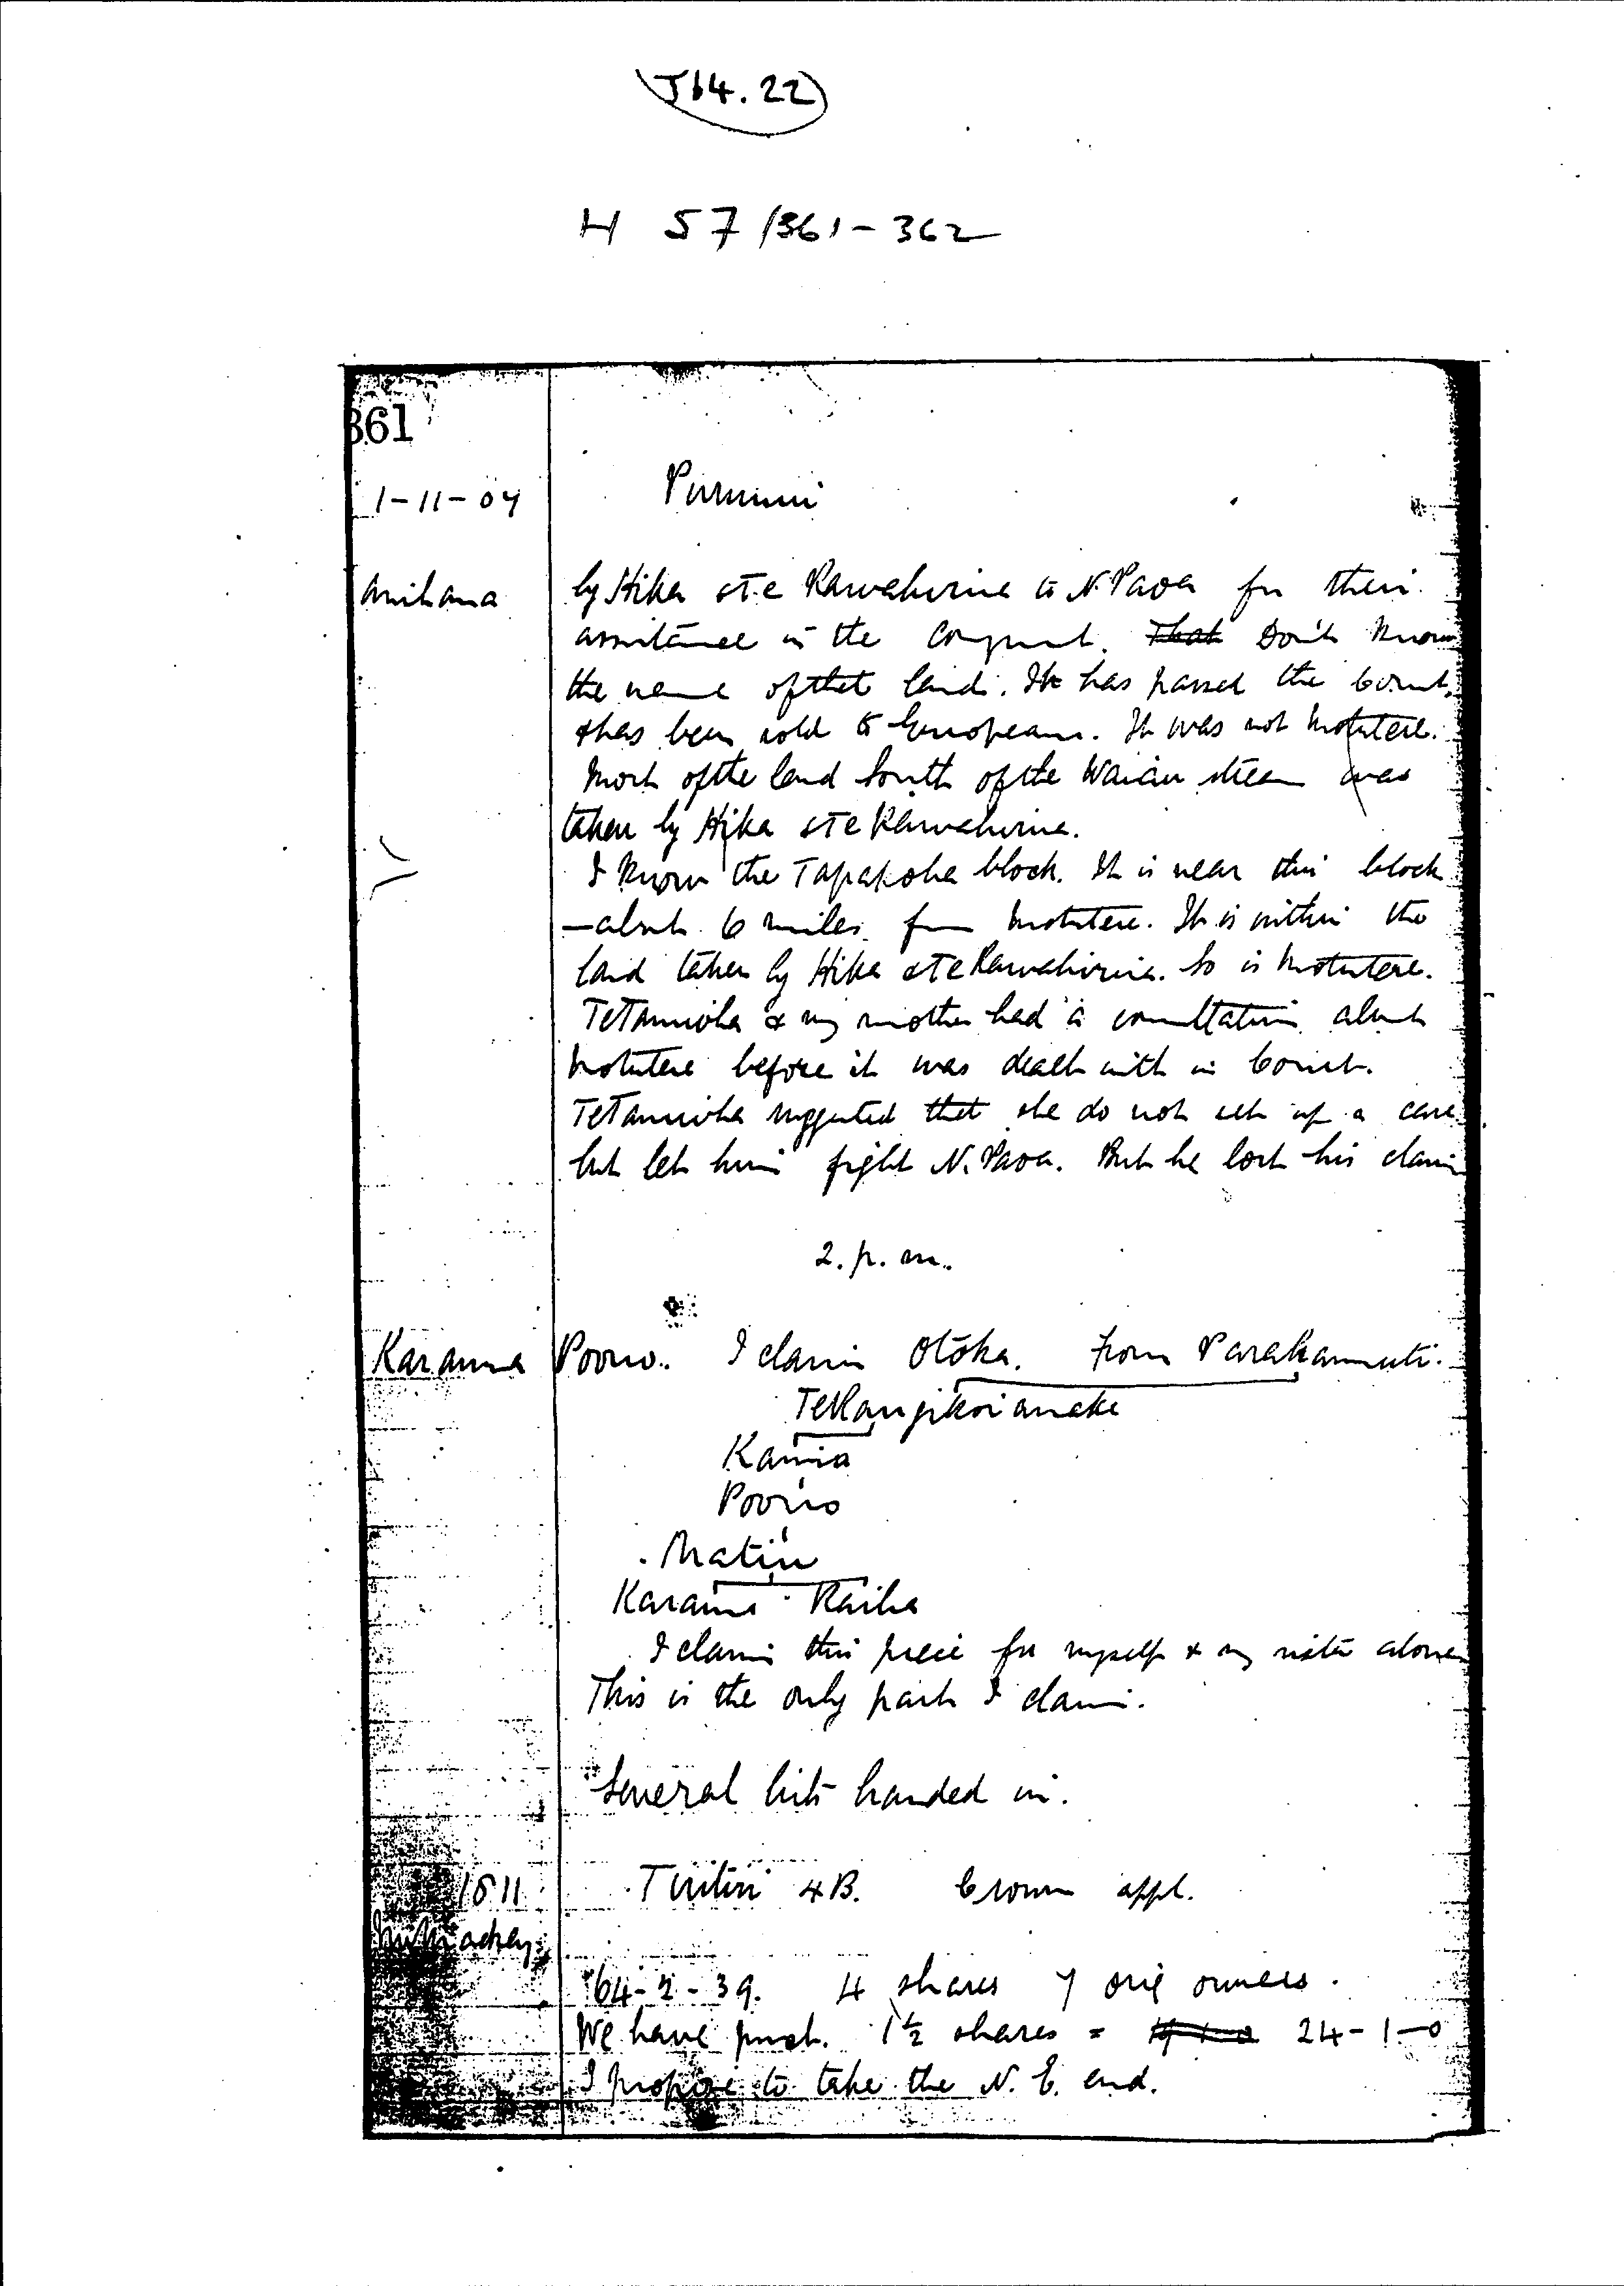 J64.22
H 57/361-362
361
1-11-04 Pururumi
Anihana by Hika & Te Rawahirua to N. Paoa for their
assistance in the conquest. That Don't know
the name of that land. It has passed the Court,
& has been sold to Europeans. It was not Motutere.
Most of the land South of the Waiau stream was
taken by Hika & Te Rawahirua.
I know the Tapapoha block. It is near this block
— about 6 miles from Motutere. It is within the
land taken by Hika & Te Rawahirua. So is Motutere.
Te Tanuwha & my mother had a consultation about
Motutere before it was dealt with in Court.
Te Tanuwha suggested that she do not set up a case
but let him fight N. Paoa. But he lost his claim
2. p. m.
Karauna Pooino. I claim Otoka. From Parakamuti.
Te Rangikoianake
Kamia
Pooino
Matiu
Karauna Raiha
I claim this piece for myself & my sister alone
This is the only part I claim.
Several lists handed in.
1511 Tiritiri 4B. Crown appl.
Mr Mackay
64-2-39. 4 shares 7 orig owners.
We have purch. 1½ shares = 24-1-0
I propose to take the N. E. end.